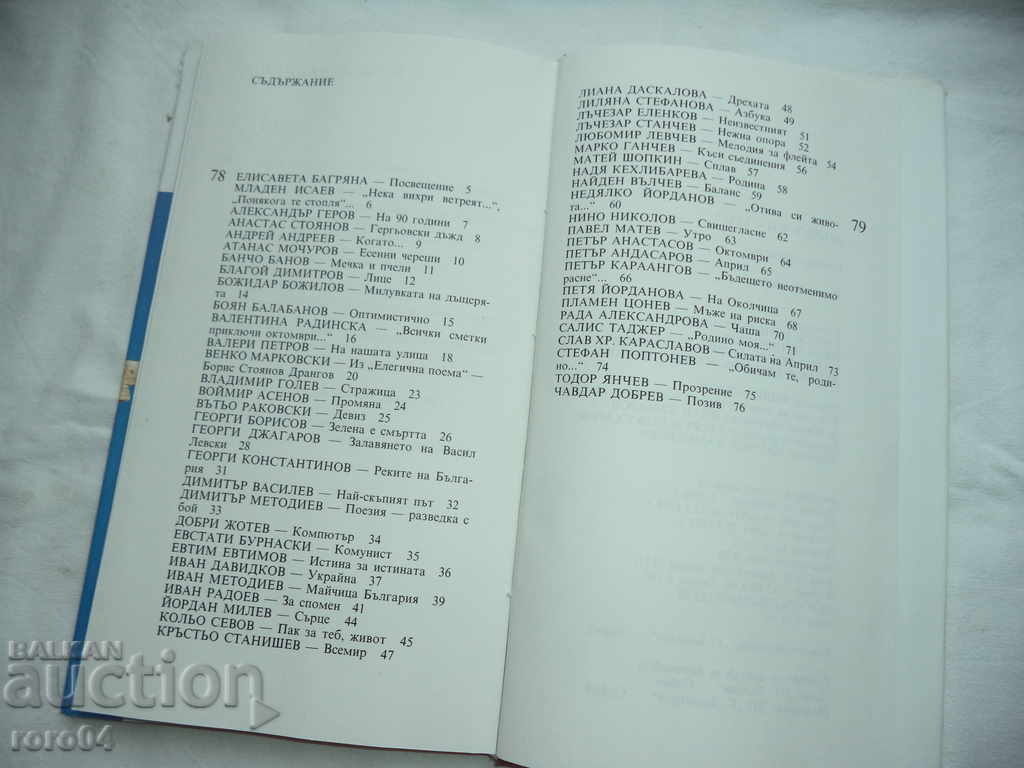 СЪДЪРЖАНИЕ
78 ЕЛИСАВЕТА БАГРЯНА — Посвещение 5
МЛАДЕН ИСАЕВ — „Нека вихри ветреят...",
„Понякога те стопля"... 6
АЛЕКСАНДЪР ГЕРОВ — На 90 години 7
АНАСТАС СТОЯНОВ — Гергьовски дъжд 8
АНДРЕЙ АНДРЕЕВ — Когато... 9
АТАНАС МОЧУРОВ — Есенни череши 10
БАНЧО БАНОВ — Мечка и пчели 11
БЛАГОЙ ДИМИТРОВ — Лице 12
БОЖИДАР БОЖИЛОВ — Милувката на дъщеря-
та 14
БОЯН БАЛАБАНОВ — Оптимистично 15
ВАЛЕНТИНА РАДИНСКА — „Всички сметки
приключи октомври..." 16
ВАЛЕРИ ПЕТРОВ — На нашата улица 18
ВЕНКО МАРКОВСКИ — Из „Елегична поема" —
Борис Стоянов Дрангов 20
ВЛАДИМИР ГОЛЕВ — Стражица 23
ВОЙМИР АСЕНОВ — Промяна 24
ВЪТЬО РАКОВСКИ — Девиз 25
ГЕОРГИ БОРИСОВ — Зелена е смъртта 26
ГЕОРГИ ДЖАГАРОВ — Залавянето на Васил
Левски 28
ГЕОРГИ КОНСТАНТИНОВ — Реките на Бълга-
рия 31
ДИМИТЪР ВАСИЛЕВ — Най-скъпият път 32
ДИМИТЪР МЕТОДИЕВ — Поезия — разведка с
бой 33
ДОБРИ ЖОТЕВ — Компютър 34
ЕВСТАТИ БУРНАСКИ — Комунист 35
ЕВТИМ ЕВТИМОВ — Истина за истината 36
ИВАН ДАВИДКОВ — Украйна 37
ИВАН МЕТОДИЕВ — Майчица България 39
ИВАН РАДОЕВ — За спомен 41
ЙОРДАН МИЛЕВ — Сърце 44
КОЛЬО СЕВОВ — Пак за теб, живот 45
КРЪСТЬО СТАНИШЕВ — Всемир 47
ЛИАНА ДАСКАЛОВА — Дрехата 48
ЛИЛЯНА СТЕФАНОВА — Азбука 49
ЛЪЧЕЗАР ЕЛЕНКОВ — Неизвестният 51
ЛЪЧЕЗАР СТАНЧЕВ — Нежна опора 52
ЛЮБОМИР ЛЕВЧЕВ — Мелодия за флейта 54
МАРКО ГАНЧЕВ — Къси съединения 56
МАТЕЙ ШОПКИН — Сплав 57
НАДЯ КЕХЛИБАРЕВА — Родина 58
НАЙДЕН ВЪЛЧЕВ — Баланс 59
НЕДЯЛКО ЙОРДАНОВ — „Отива си живо-
та..." 60
79
НИНО НИКОЛОВ — Свищегласие 62
ПАВЕЛ МАТЕВ — Утро 63
ПЕТЪР АНАСТАСОВ — Октомври 64
ПЕТЪР АНДАСАРОВ — Април 65
ПЕТЪР КАРААНГОВ — „Бъдещето неотменимо
расне"... 66
ПЕТЯ ЙОРДАНОВА — На Околчица 67
ПЛАМЕН ЦОНЕВ — Мъже на риска 68
РАДА АЛЕКСАНДРОВА — Чаша 70
САЛИС ТАДЖЕР — „Родино моя..." 71
СЛАВ ХР. КАРАСЛАВОВ — Силата на Април 73
СТЕФАН ПОПТОНЕВ — „Обичам те, роди-
но..." 74
ТОДОР ЯНЧЕВ — Прозрение 75
ЧАВДАР ДОБРЕВ — Позив 76
BALKAN
auction
roro04